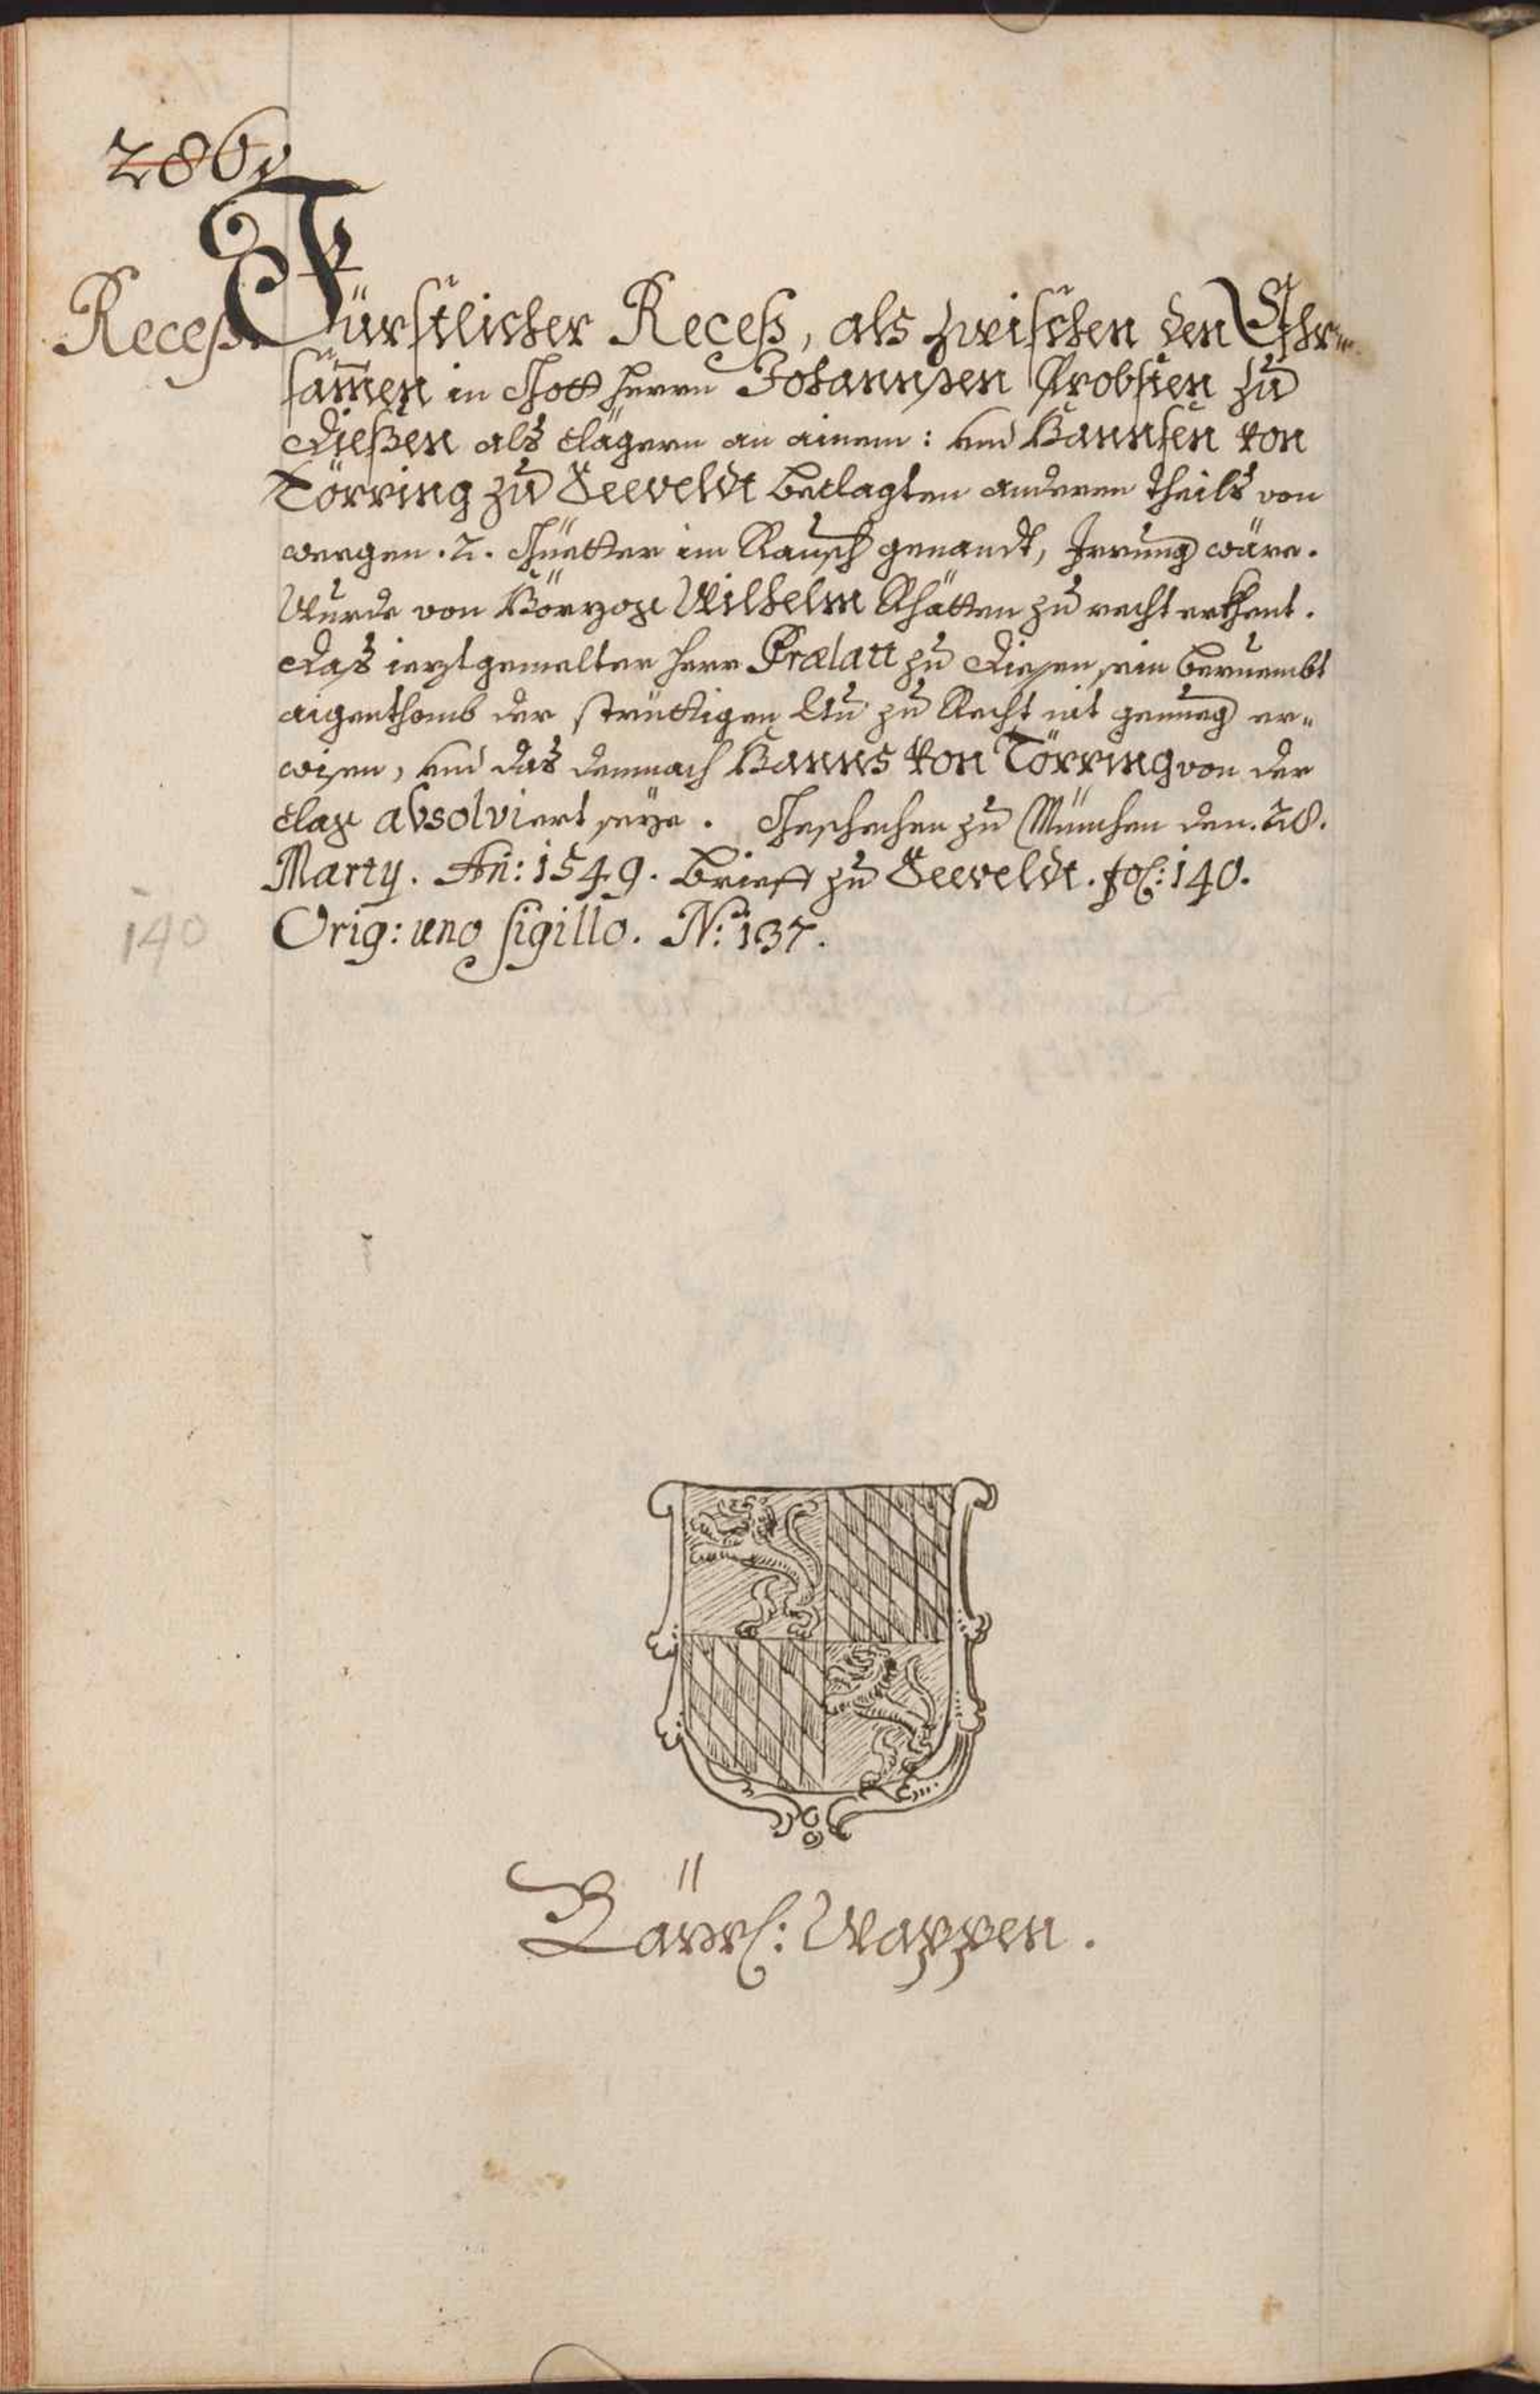 286
Recess.
Fürstlicher Recess, als zwischen den Ehr-
samen in Gott herrn Johannsen Probsten zu
Diessen als clägern an ainem: und Hannsen von
Törring zu Seeveldt beclagten anderen theils von
weegen .2. Güetter im Rausch genandt, Irrung wäre.
Wurde von Hörzog Wilhelm Rhätten zu recht erkhent.
Das ieztgemelter herr Prælatt zu Diesen sein beruembt
aigenthomb der strüttigen zu Recht nit genueg er-
wisen, und das demnach Hanns von Törring von der
clag absolviert seye. Geschechen zu München den .28.
Marty. An: 1549. Brieff zu Seeveldt. fol: 140.
140
Orig: uno sigillo. N: 137.
Bäyrl: Wappen.